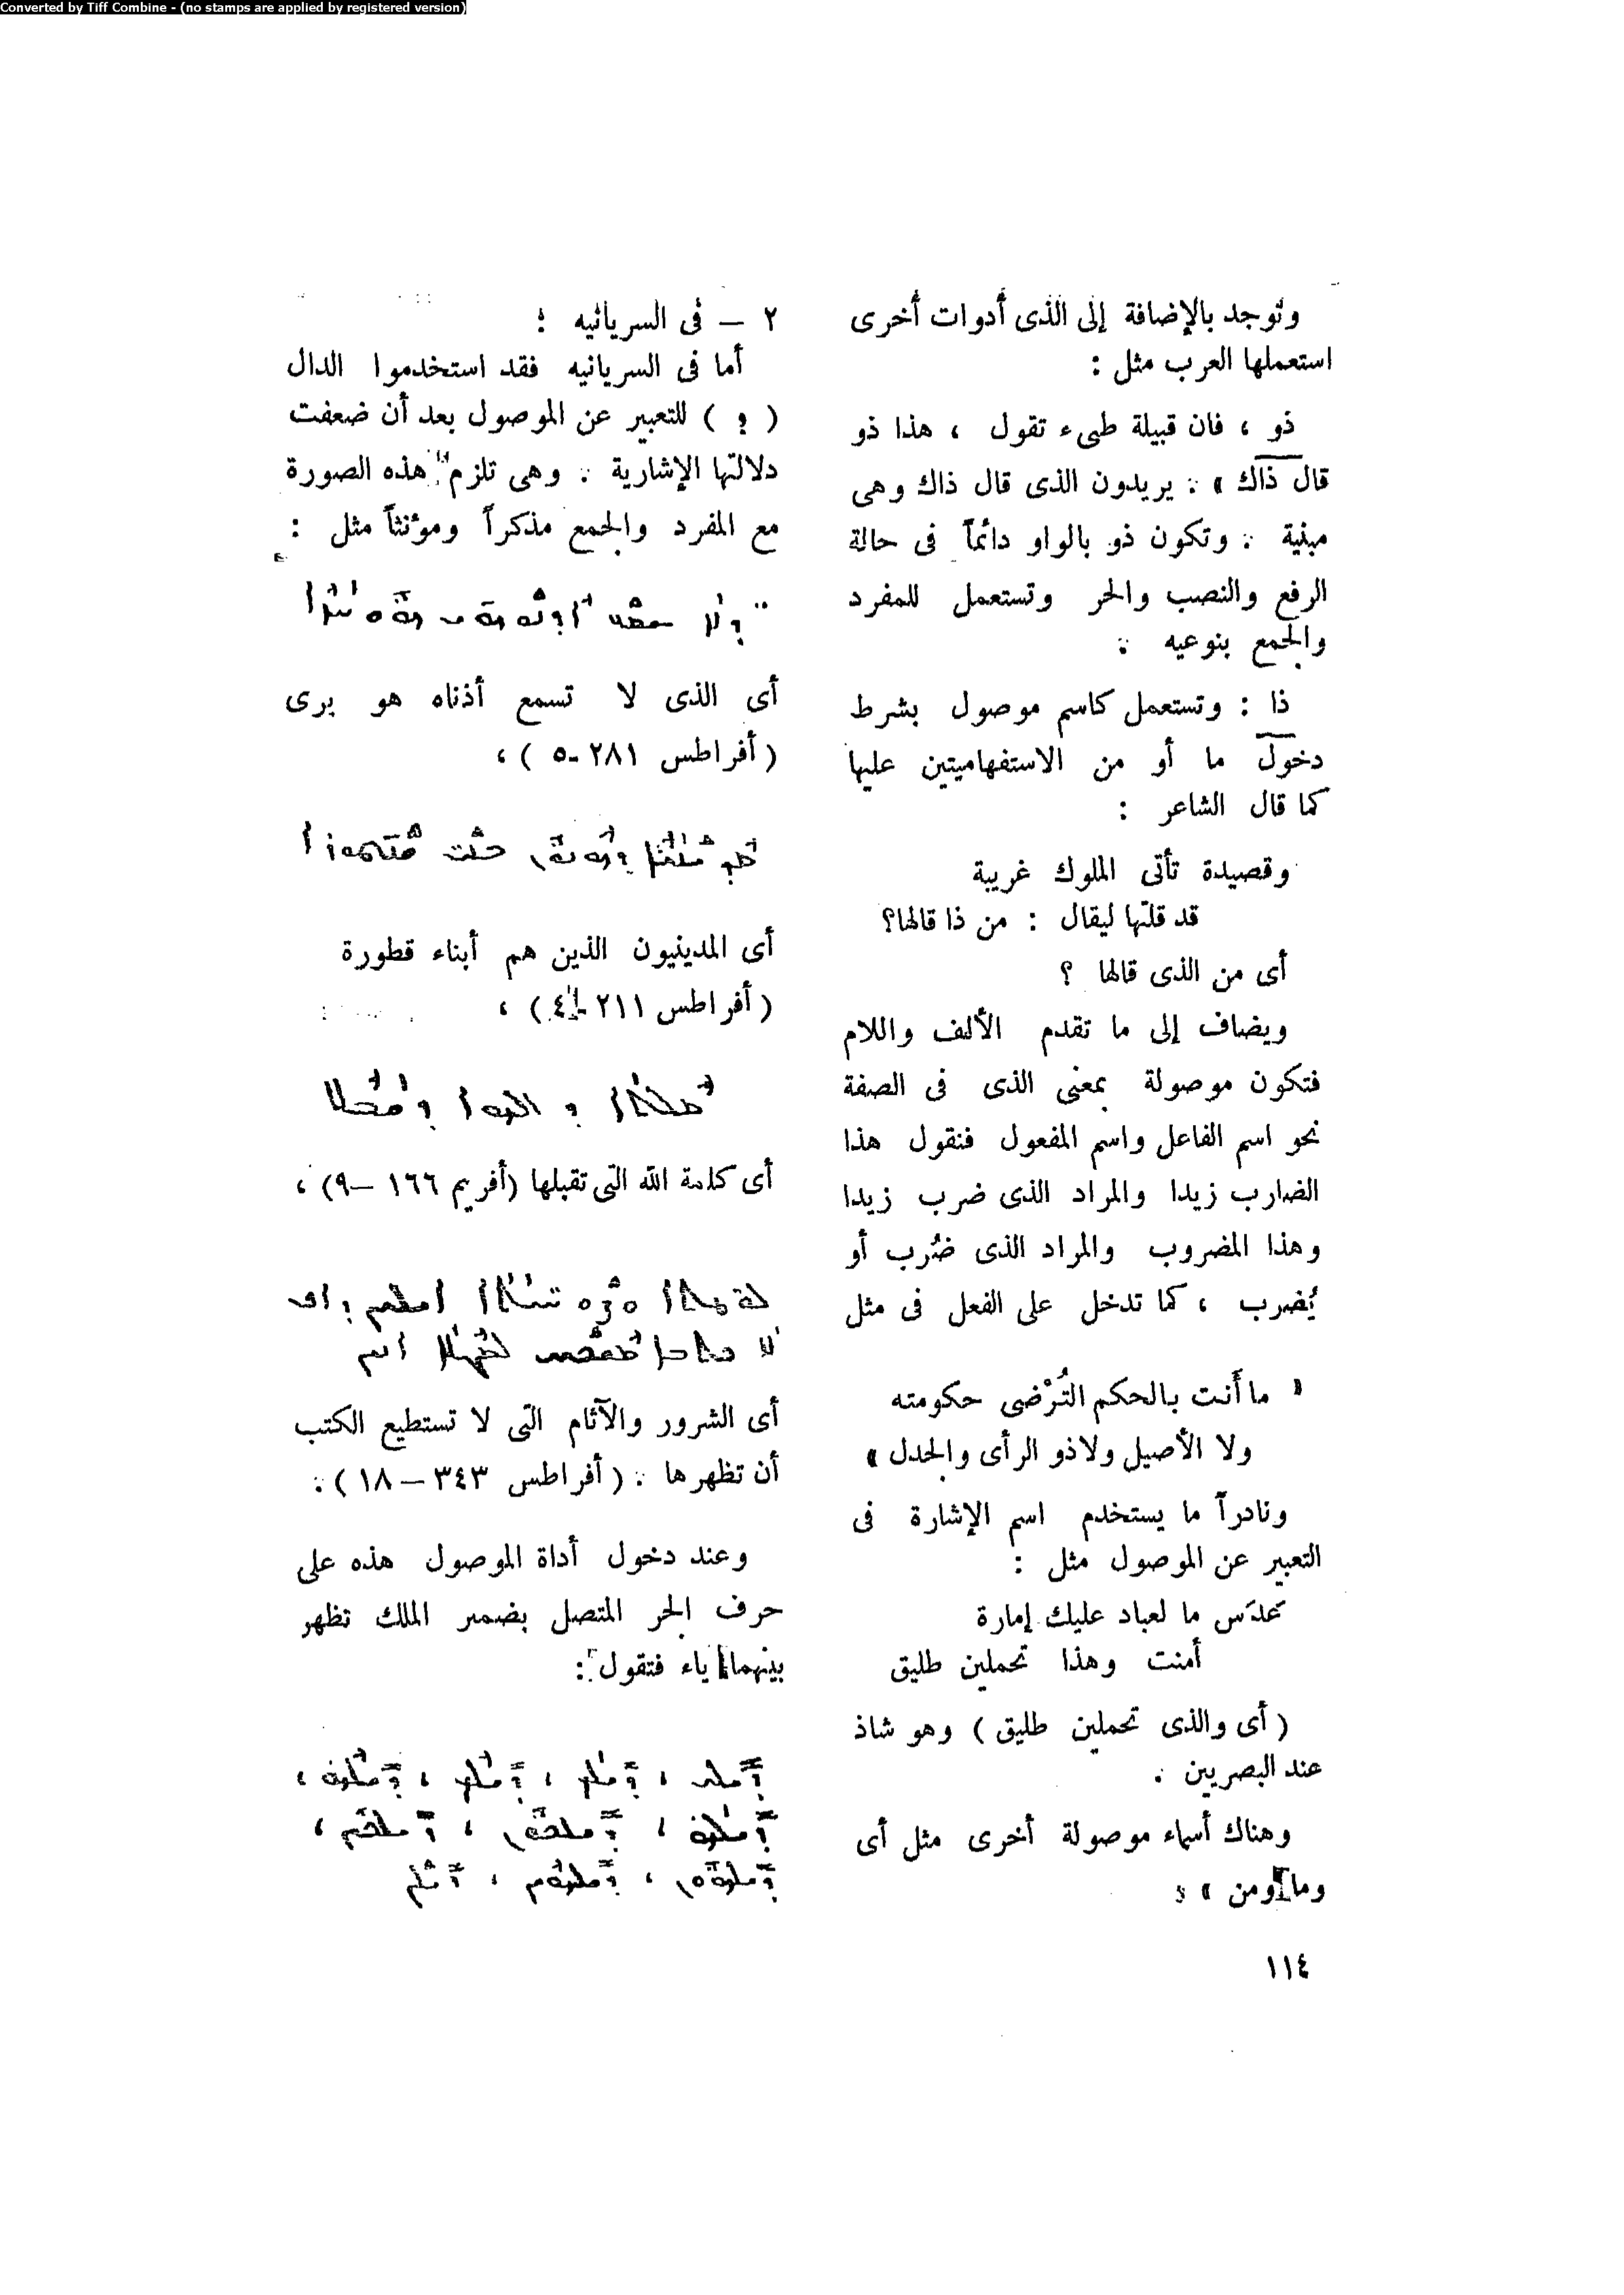 Converted by Tiff Combine - (no stamps are applied by registered version)
وتوجد بالإضافة إلى الذى أدوات أخرى
استعملها العرب مثل :
ذو ، فان قبيلة طىء تقول ، هذا ذو
قال ذاك » . يريدون الذى قال ذاك وهى
مبنية . وتكون ذو بالواو دائماً فى حالة
الرفع والنصب والجر وتستعمل للمفرد
والجمع بنوعيه .
ذا : وتستعمل كاسم موصول بشرط
دخول ما أو من الاستفهاميتين عليها
كما قال الشاعر :
وقصيدة تأتى الملوك غريبة
قد قلتها ليقال : من ذا قالها؟
أى من الذى قالها ؟
ويضاف إلى ما تقدم الألف واللام
فتكون موصولة بمعنى الذى فى الصفة
نحو اسم الفاعل واسم المفعول فنقول هذا
الضارب زيدا والمراد الذى ضرب زيدا
وهذا المضروب والمراد الذى ضُرب أو
يُضرب ، كما تدخل على الفعل فى مثل
« ما أَنت بالحكم التُرْضى حكومته
ولا الأصيل ولاذو الرأى والجدل »
ونادراً ما يستخدم اسم الإشارة فى
التعبير عن الموصول مثل :
عَدَس ما لعباد عليك إمارة
أمنت وهذا تحملين طليق
( أى والذى تحملين طليق ) وهو شاذ
عند البصريين .
وهناك أسماء موصولة أخرى مثل أى
وما ومن »
٢ – فى السريانيه :
أما فى السريانيه فقد استخدموا الدال
( ܕ ) للتعبير عن الموصول بعد أن ضعفت
دلالتها الإشارية . وهى تلزم هذه الصورة
مع المفرد والجمع مذكراً ومؤنثاً مثل :
أى الذى لا تسمع أذناه هو يرى
( أفراطس ٢٨١-٥ ) ،
أى المدينيون الذين هم أبناء قطورة
( أفراطس ٢١١-٤ ) ،
أى كلمة الله التى تقبلها (أفريم ١٦٦ –٩) ،
أى الشرور والآثام التى لا تستطيع الكتب
أن تظهرها . ( أفراطس ٣٤٣ – ١٨ ) .
وعند دخول أداة الموصول هذه على
حرف الجر المتصل بضمير الملك تظهر
بينهما ياء فتقول :
١١٤